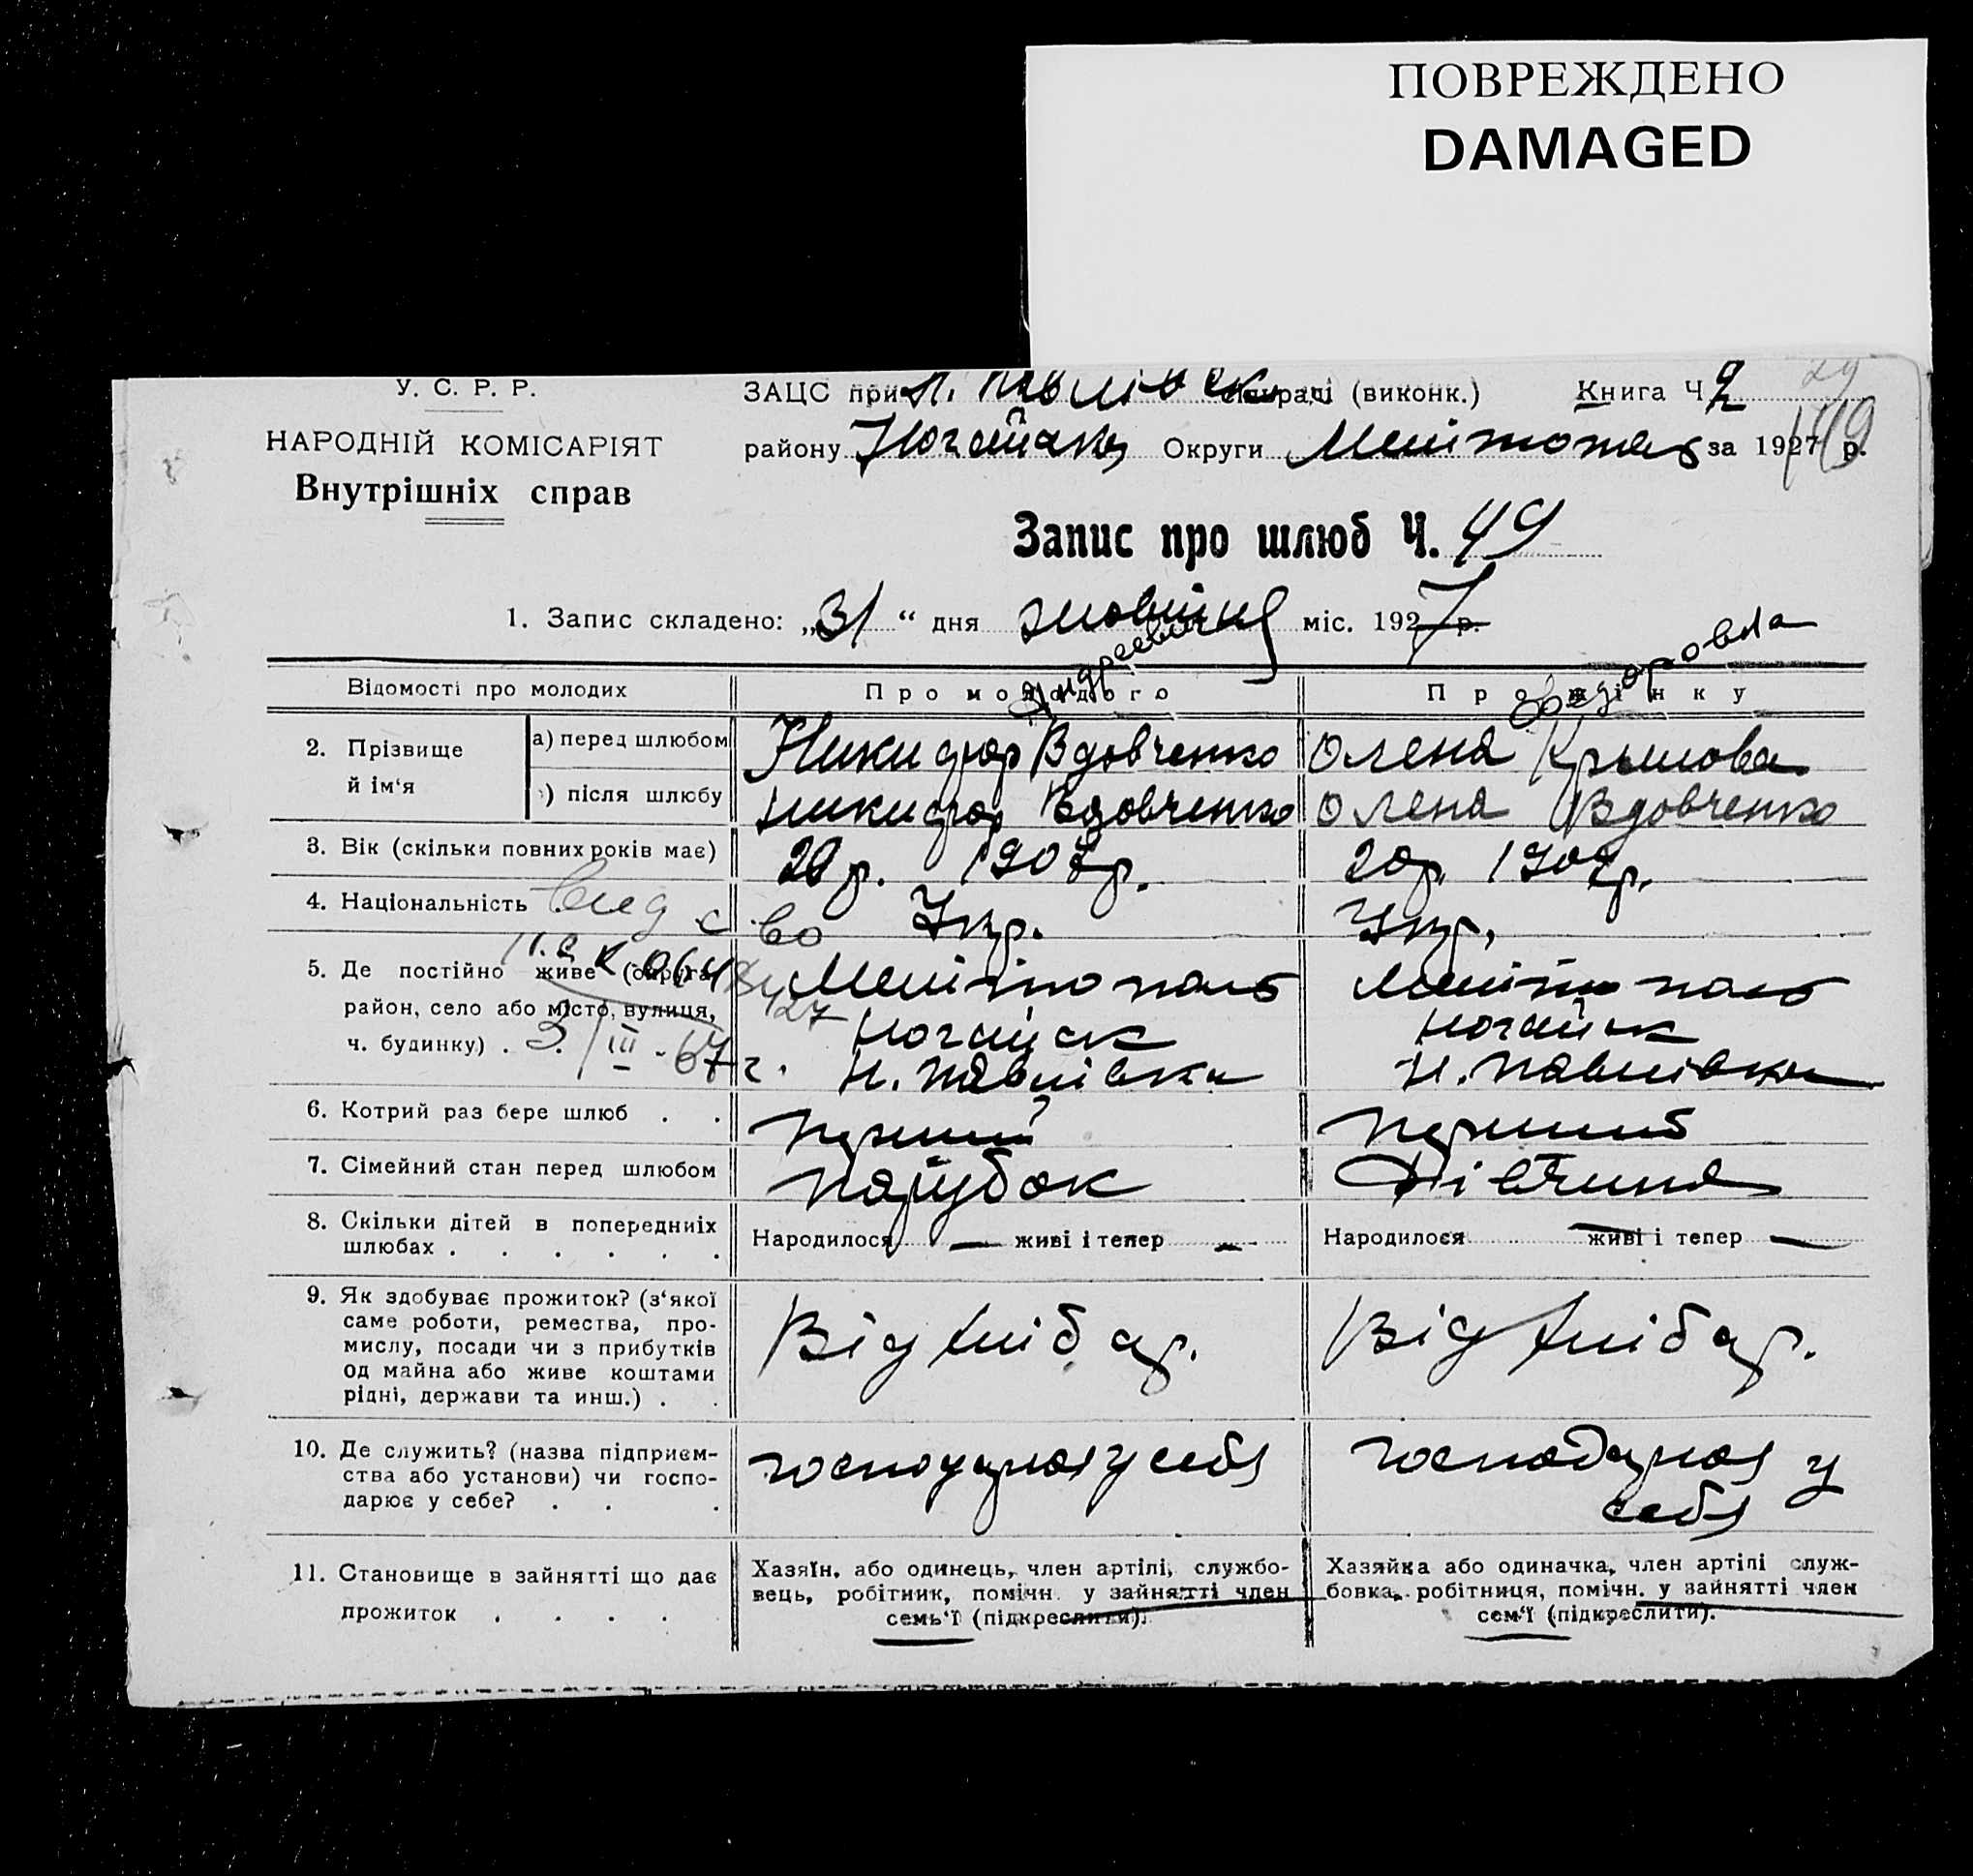 ПОВРЕЖДЕНО
DAMAGED
У. С. Р. Р.
НАРОДНІЙ КОМІСАРІЯТ
Внутрішніх справ
ЗАЦС при Н. Павлівськ сільраді (виконк.) Книга Ч 2
29
району Ногайськ Округи Мелітопол за 1927 р.
149
Запис про шлюб Ч. 49
1. Запис складено: „31“ дня жовтня міс. 1927 р.
Відомості про молодих
Про молодого
Про жінку
Андреевич
Феодоровна
2. Прізвище й ім‘я
а) перед шлюбом
Никифор Вдовченко
Олена Крылова
) після шлюбу
Никифор Вдовченко
Олена Вдовченко
3. Вік (скільки повних років має)
20 р. 1907 р.
20 р. 1907 р.
4. Національність
Укр.
Укр.
выд с-во
5. Де постійно живе (округа, район, село або місто, вулиця, ч. будинку) .
Мелітополь
Ногайськ
Н. Павлівка
Мелітополь
Ногайськ
Н. Павлівка
3/III-67 г.
6. Котрий раз бере шлюб . .
Перший
Перший
7. Сімейний стан перед шлюбом
Парубок
Дівчина
8. Скільки дітей в попередниіх шлюбах . . . . . .
Народилося — живі і тепер —
Народилося — живі і тепер —
9. Як здобуває прожиток? (з‘якої
саме роботи, ремества, про-
мислу, посади чи з прибутків
од майна або живе коштами
рідні, держави та инш.) . .
Від хлібар.
Від хлібар.
10. Де служить? (назва підприєм-
ства або установи) чи госпо-
дарює у себе? . . .
господарює у себя
господарює у
себя
11. Становище в зайнятті що дає
прожиток . . . .
Хазяїн, або одинець, член артілі, службо-
вець, робітник, помічн. у зайнятті член
семь‘ї (підкреслити).
Хазяйка або одиначка, член артілі служ-
бовка, робітниця, помічн. у зайнятті член
сем‘ї (підкреслити).